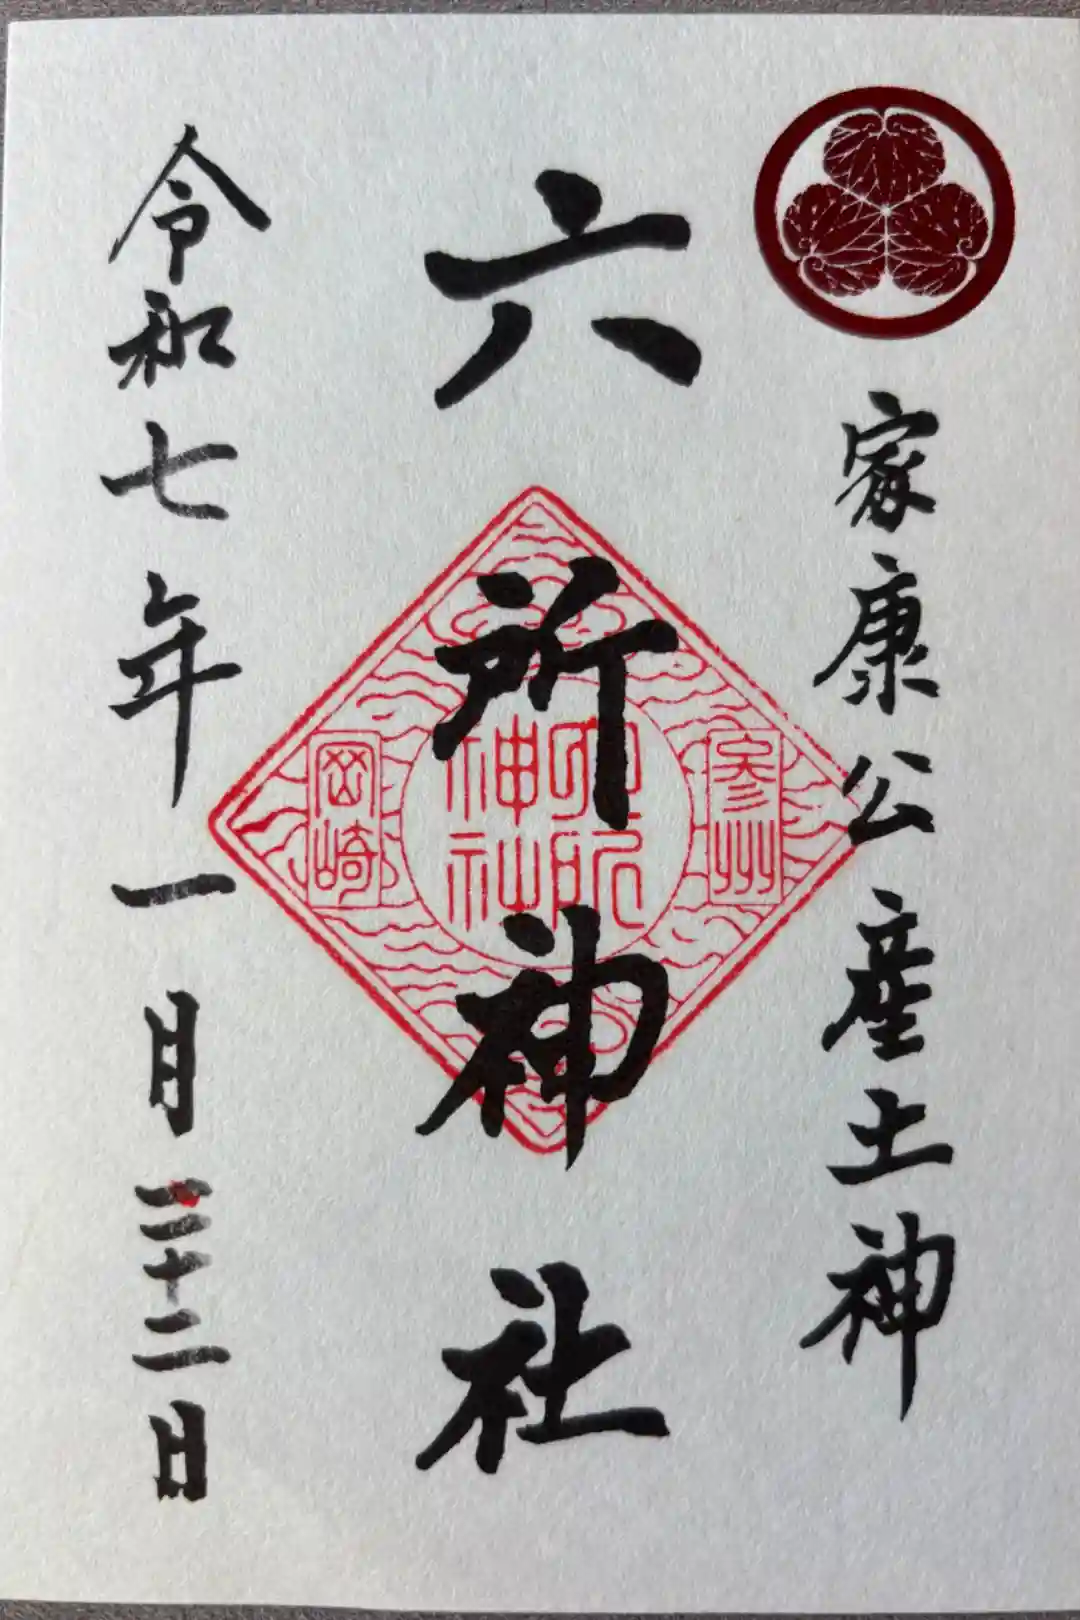 家康公産土神
六所神社
参州
六所
神社
岡崎
令和七年一月二十二日